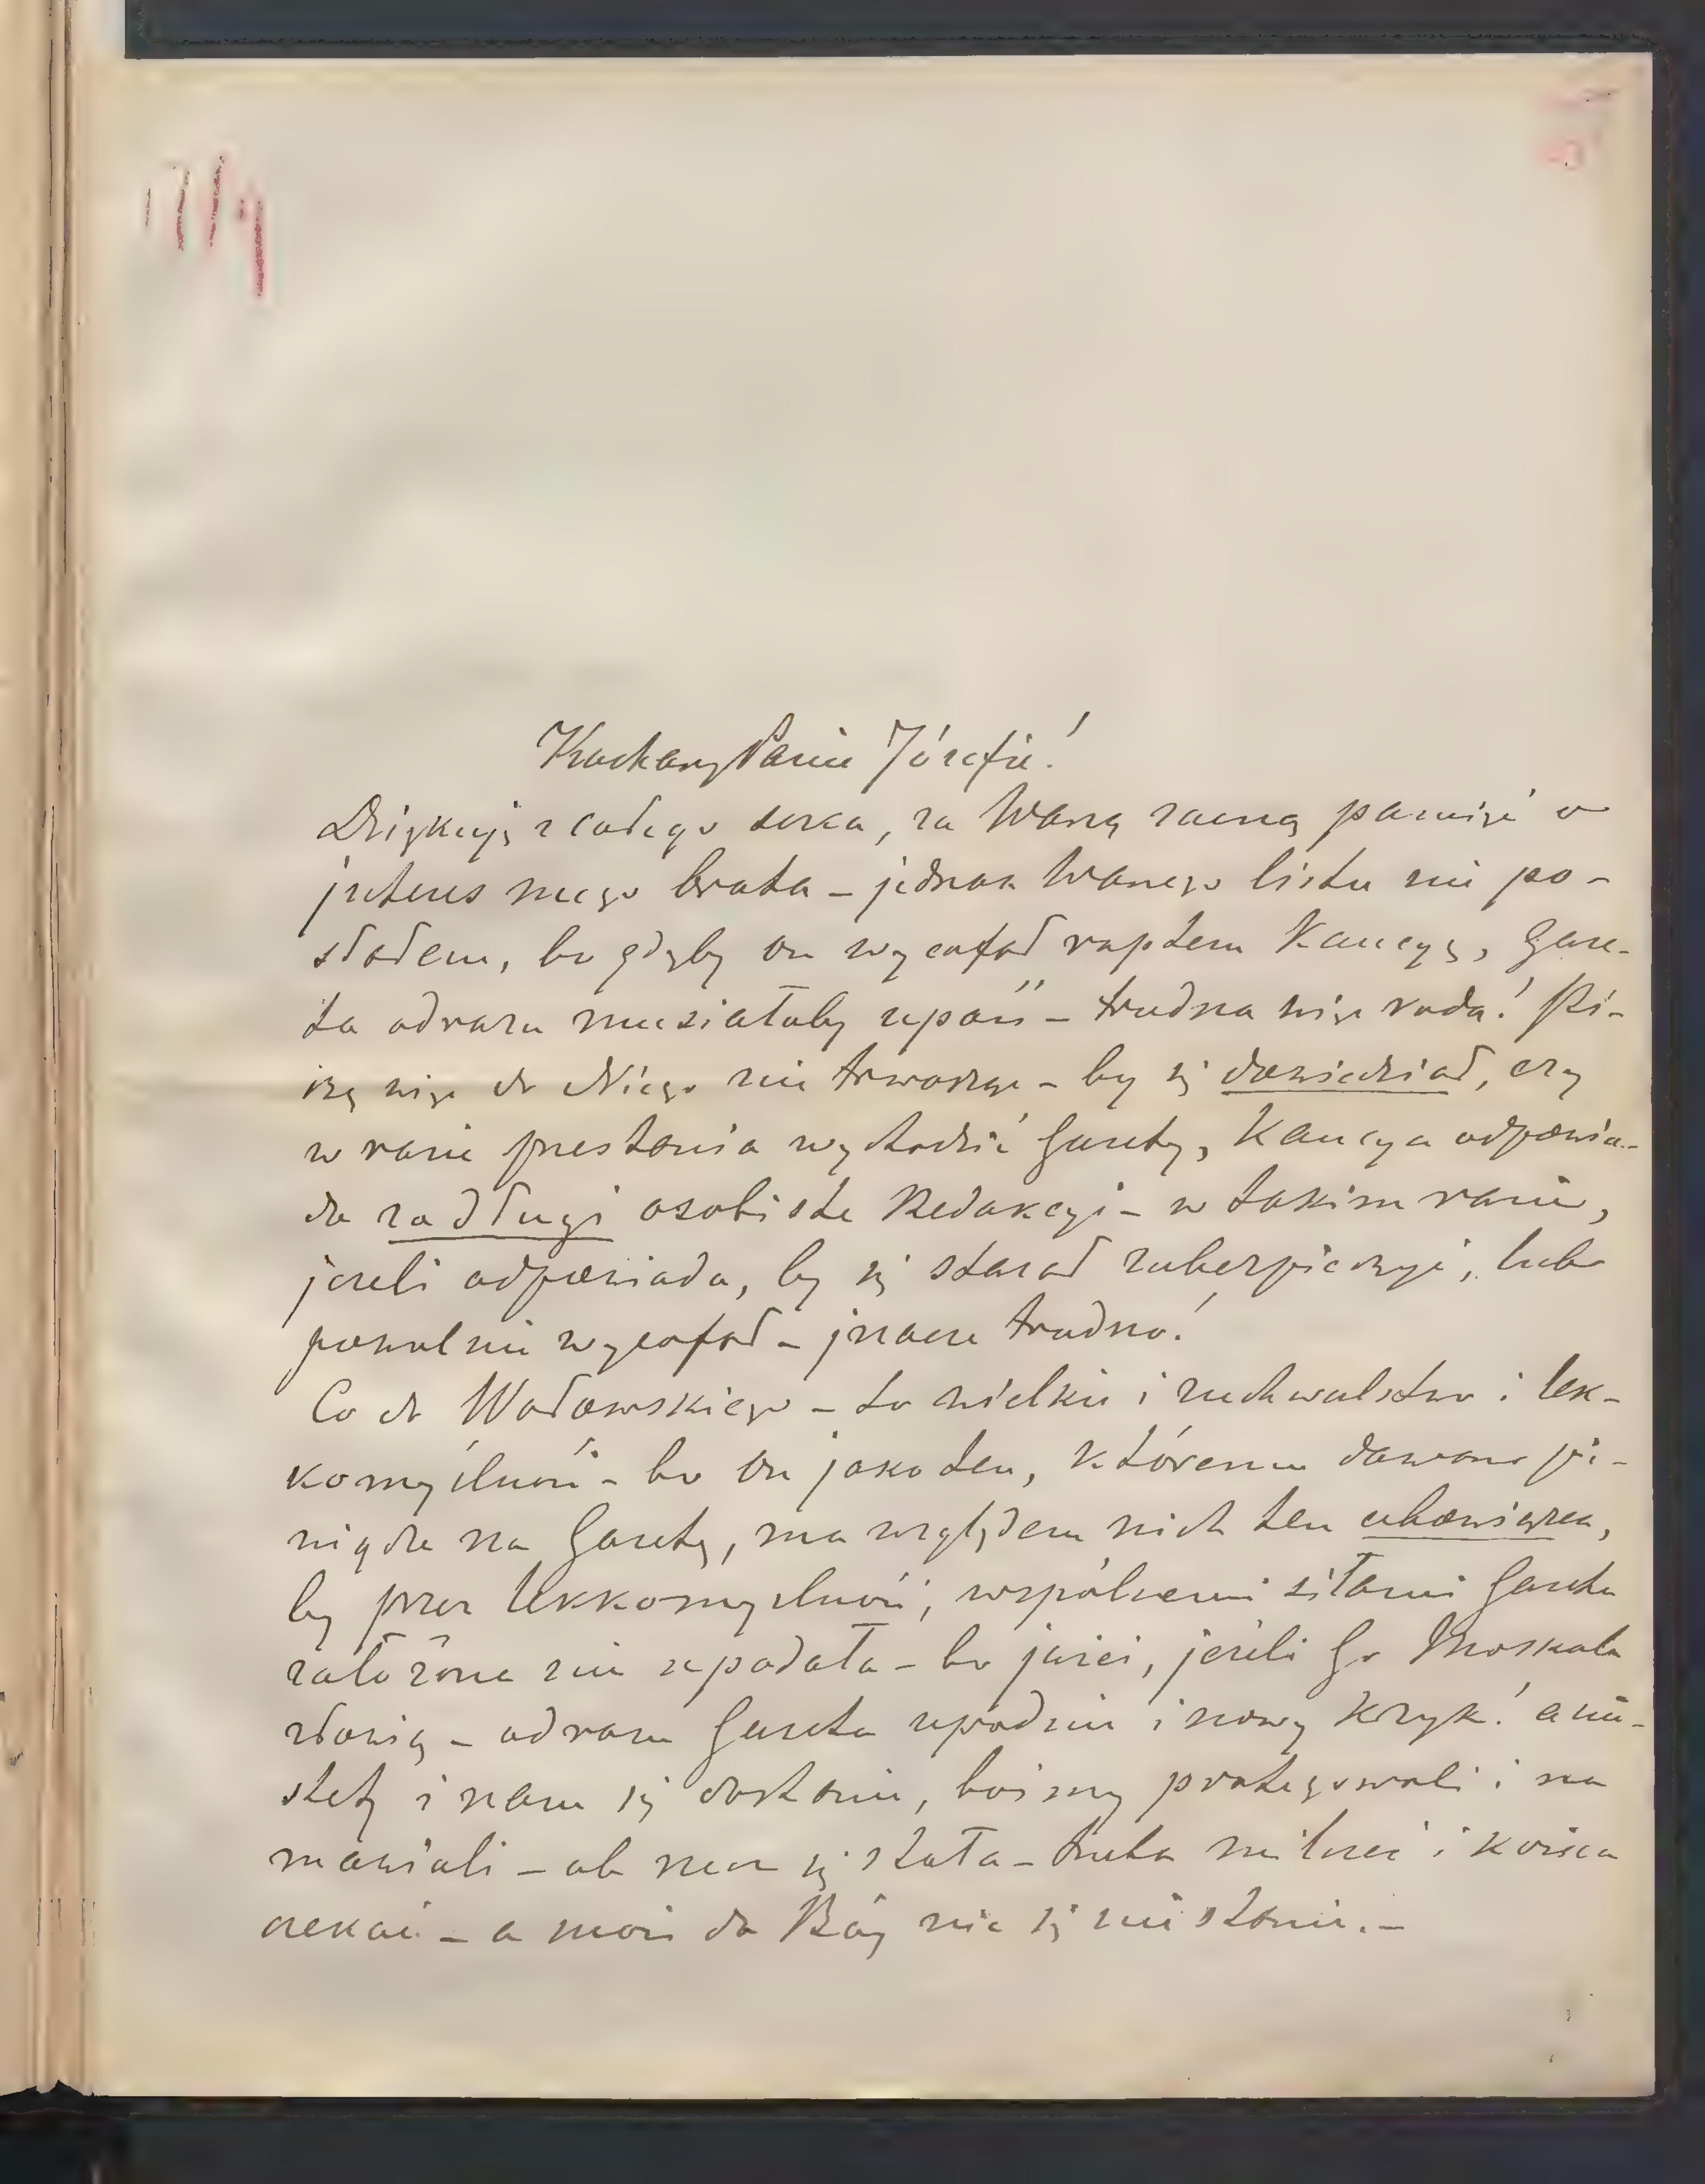 17/4
Kochany Panie Józefie!
Dziękuję z całego serca, za Waszą zacną pamięć o
jnteres mego brata – jednak Waszego listu nie po-
słałem, bo gdyby on wycofał raptem Kaucyę, Gaze-
ta odrazu musiałaby upaść – trudna więc rada! Pi-
szę więc do Niego nie trwożąc – by się dowiedział, czy
w razie przestania wychodzić Gazety, Kaucya odpowia-
da za długi osobiste Redakcyi – w takim razie,
jeżeli odpowiada, by się starał zabezpieczyć, lub
powolnie wycofał – jnaczej trudno!
Co do Wołowskiego – to wielkie i zuchwalstwo i lek-
komyślność – bo on jako ten, któremu dawano pi-
niądze na Gazetę, ma względem nich ten obowiązek,
by przez lekkomyślność, wspólnemi siłami Gazeta
założona nie upadała – bo jużci, jeżeli Go Moskale
złowią – odrazu Gazeta upadnie i nowy krzyk! a nie-
stety i nam się dostanie, bośmy protegowali i na
mawiali – ale rzecz się stała – trzeba milczeć i końca
czekać – a może da Bóg nic się nie stanie. –